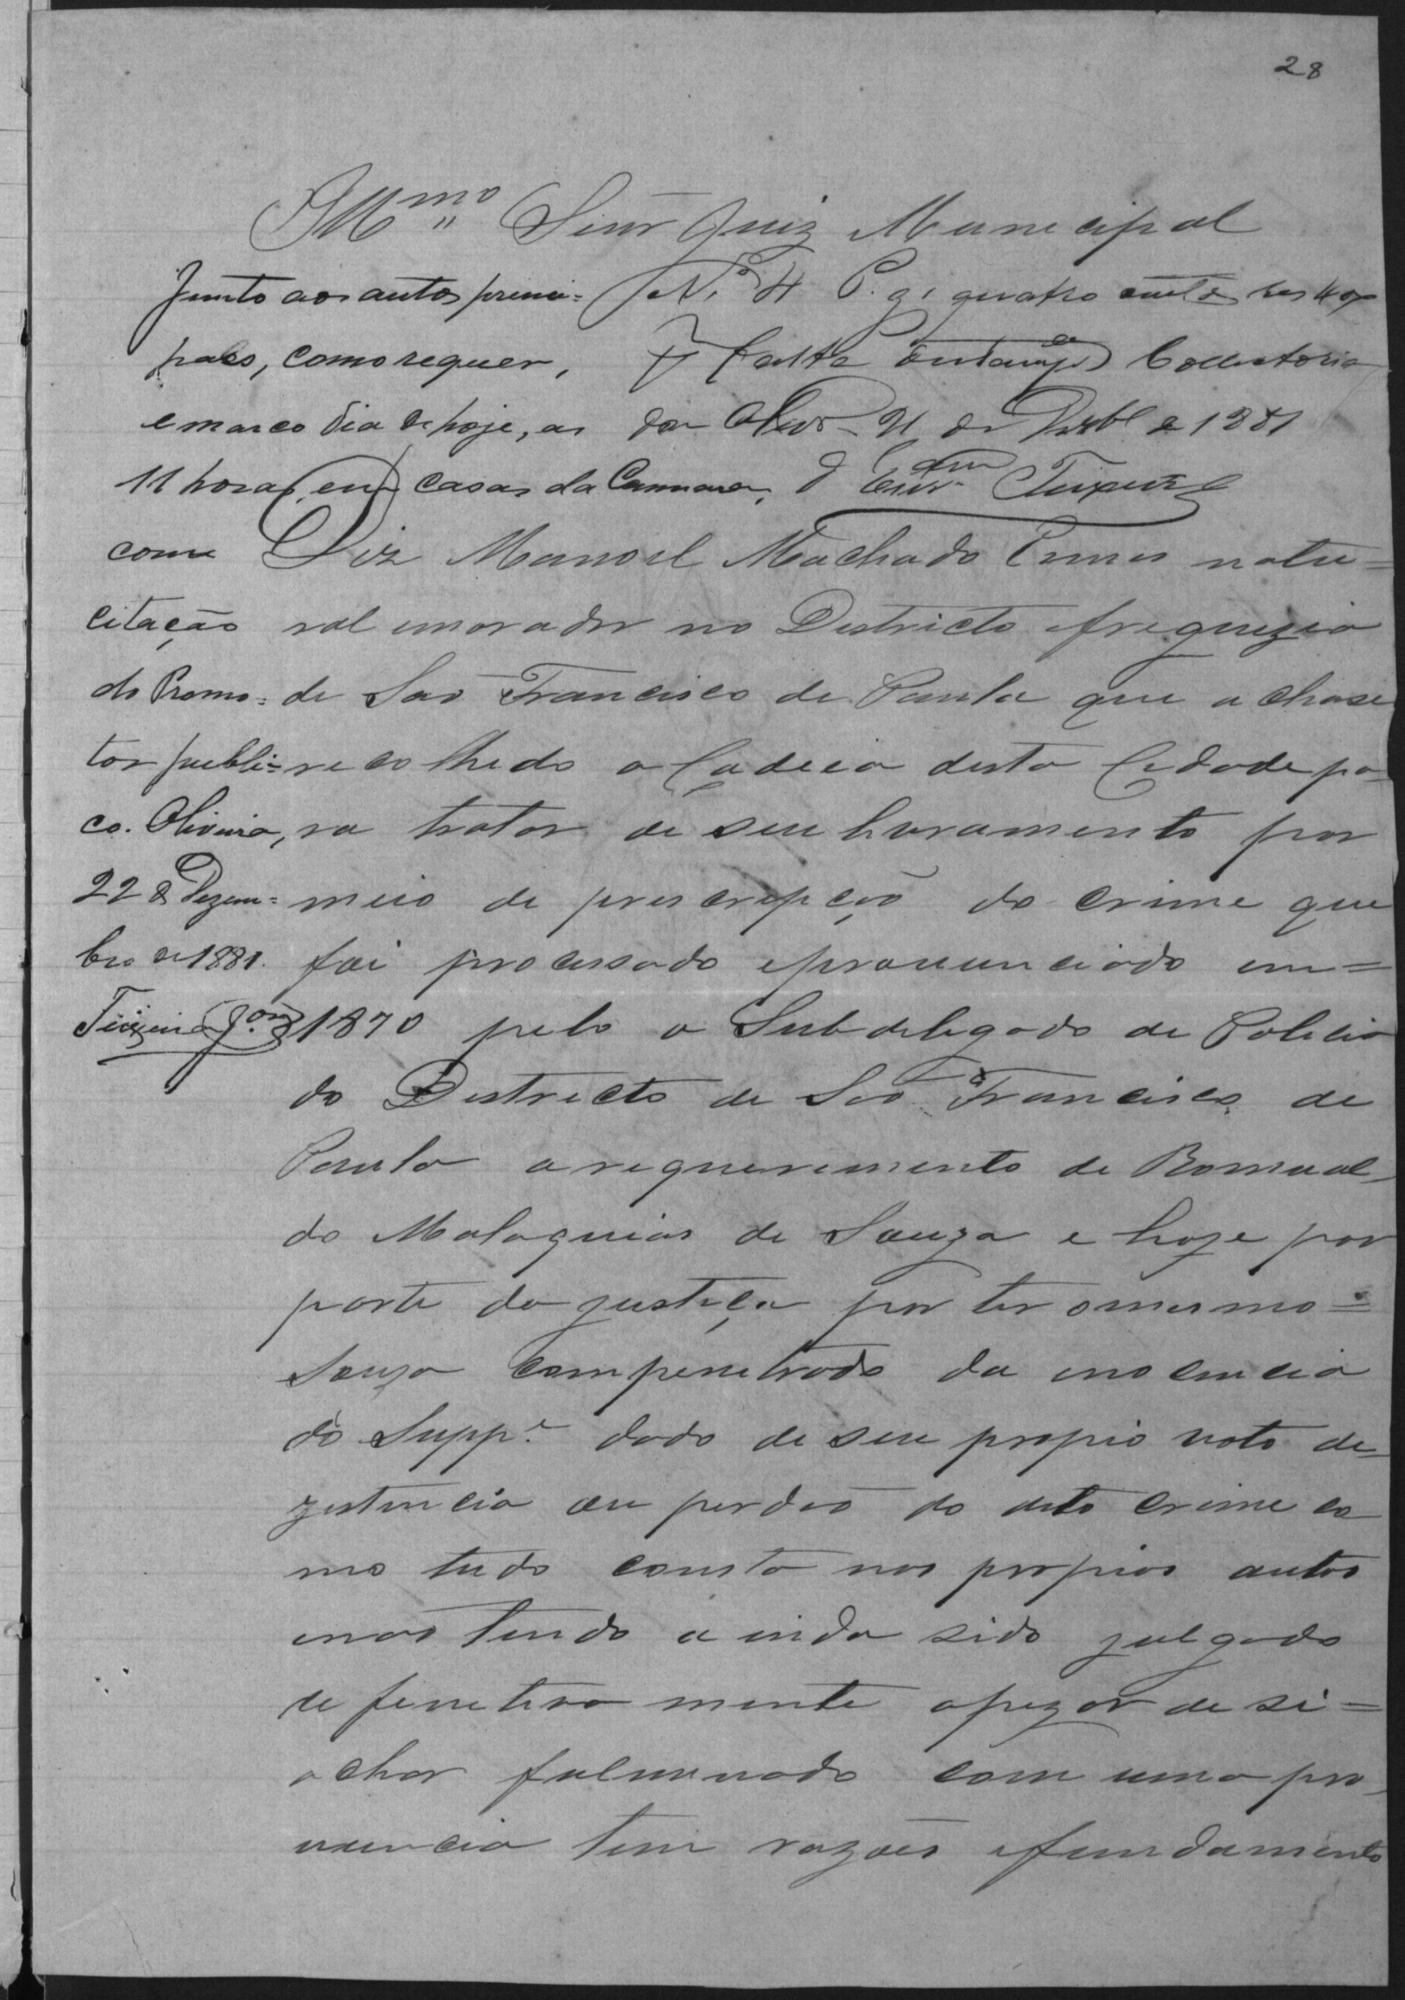 28
Illmo Senr Juiz Municipal
Junto aos autos princi=
paes, como requer,
e marco dia de hoje, as
11 horas, em casas da Camara,
com
citação
do Promo=
tor publi=
co. Oliveira,
22 de Dezem=
bro de 1881.
Teixeira Jor
No 4 P. g. quatro centos res 400
falta de Estampa Collectoria
da Oliva 21 de Dezbr de 1881
O Escram Teixeira
Diz Manoel Machado Ennes natu=
ral e morador no Districto e freguezia
de São Francisco de Paula que achase
recolhido a Cadeia desta Cidade pa-
ra tratar de seu livramento por
meio de prescripção do crime que
foi processado e pronunciado em=
1870 pelo o Subdelegado de Policia
do Districto de São Francisco de
Paula a requerimento de Romual-
do Malaquias de Souza e hoje por
parte da justiça por ter o mesmo=
Souza compenetrado da inocencia
do Suppe dado de seu propio moto de-
zistencia ou perdão do dito crime co-
mo tudo consta nos propios autos
não tendo ainda sido julgado
definetiva mente apezar de si=
achar fulminado com uma pro-
nuncia tem razões e fundamento